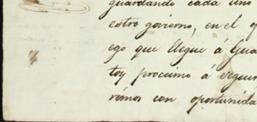 guardando cada uno
estro govierno, en el
ego que llegue á Gua
toy procsimo á
rémos con oportunida